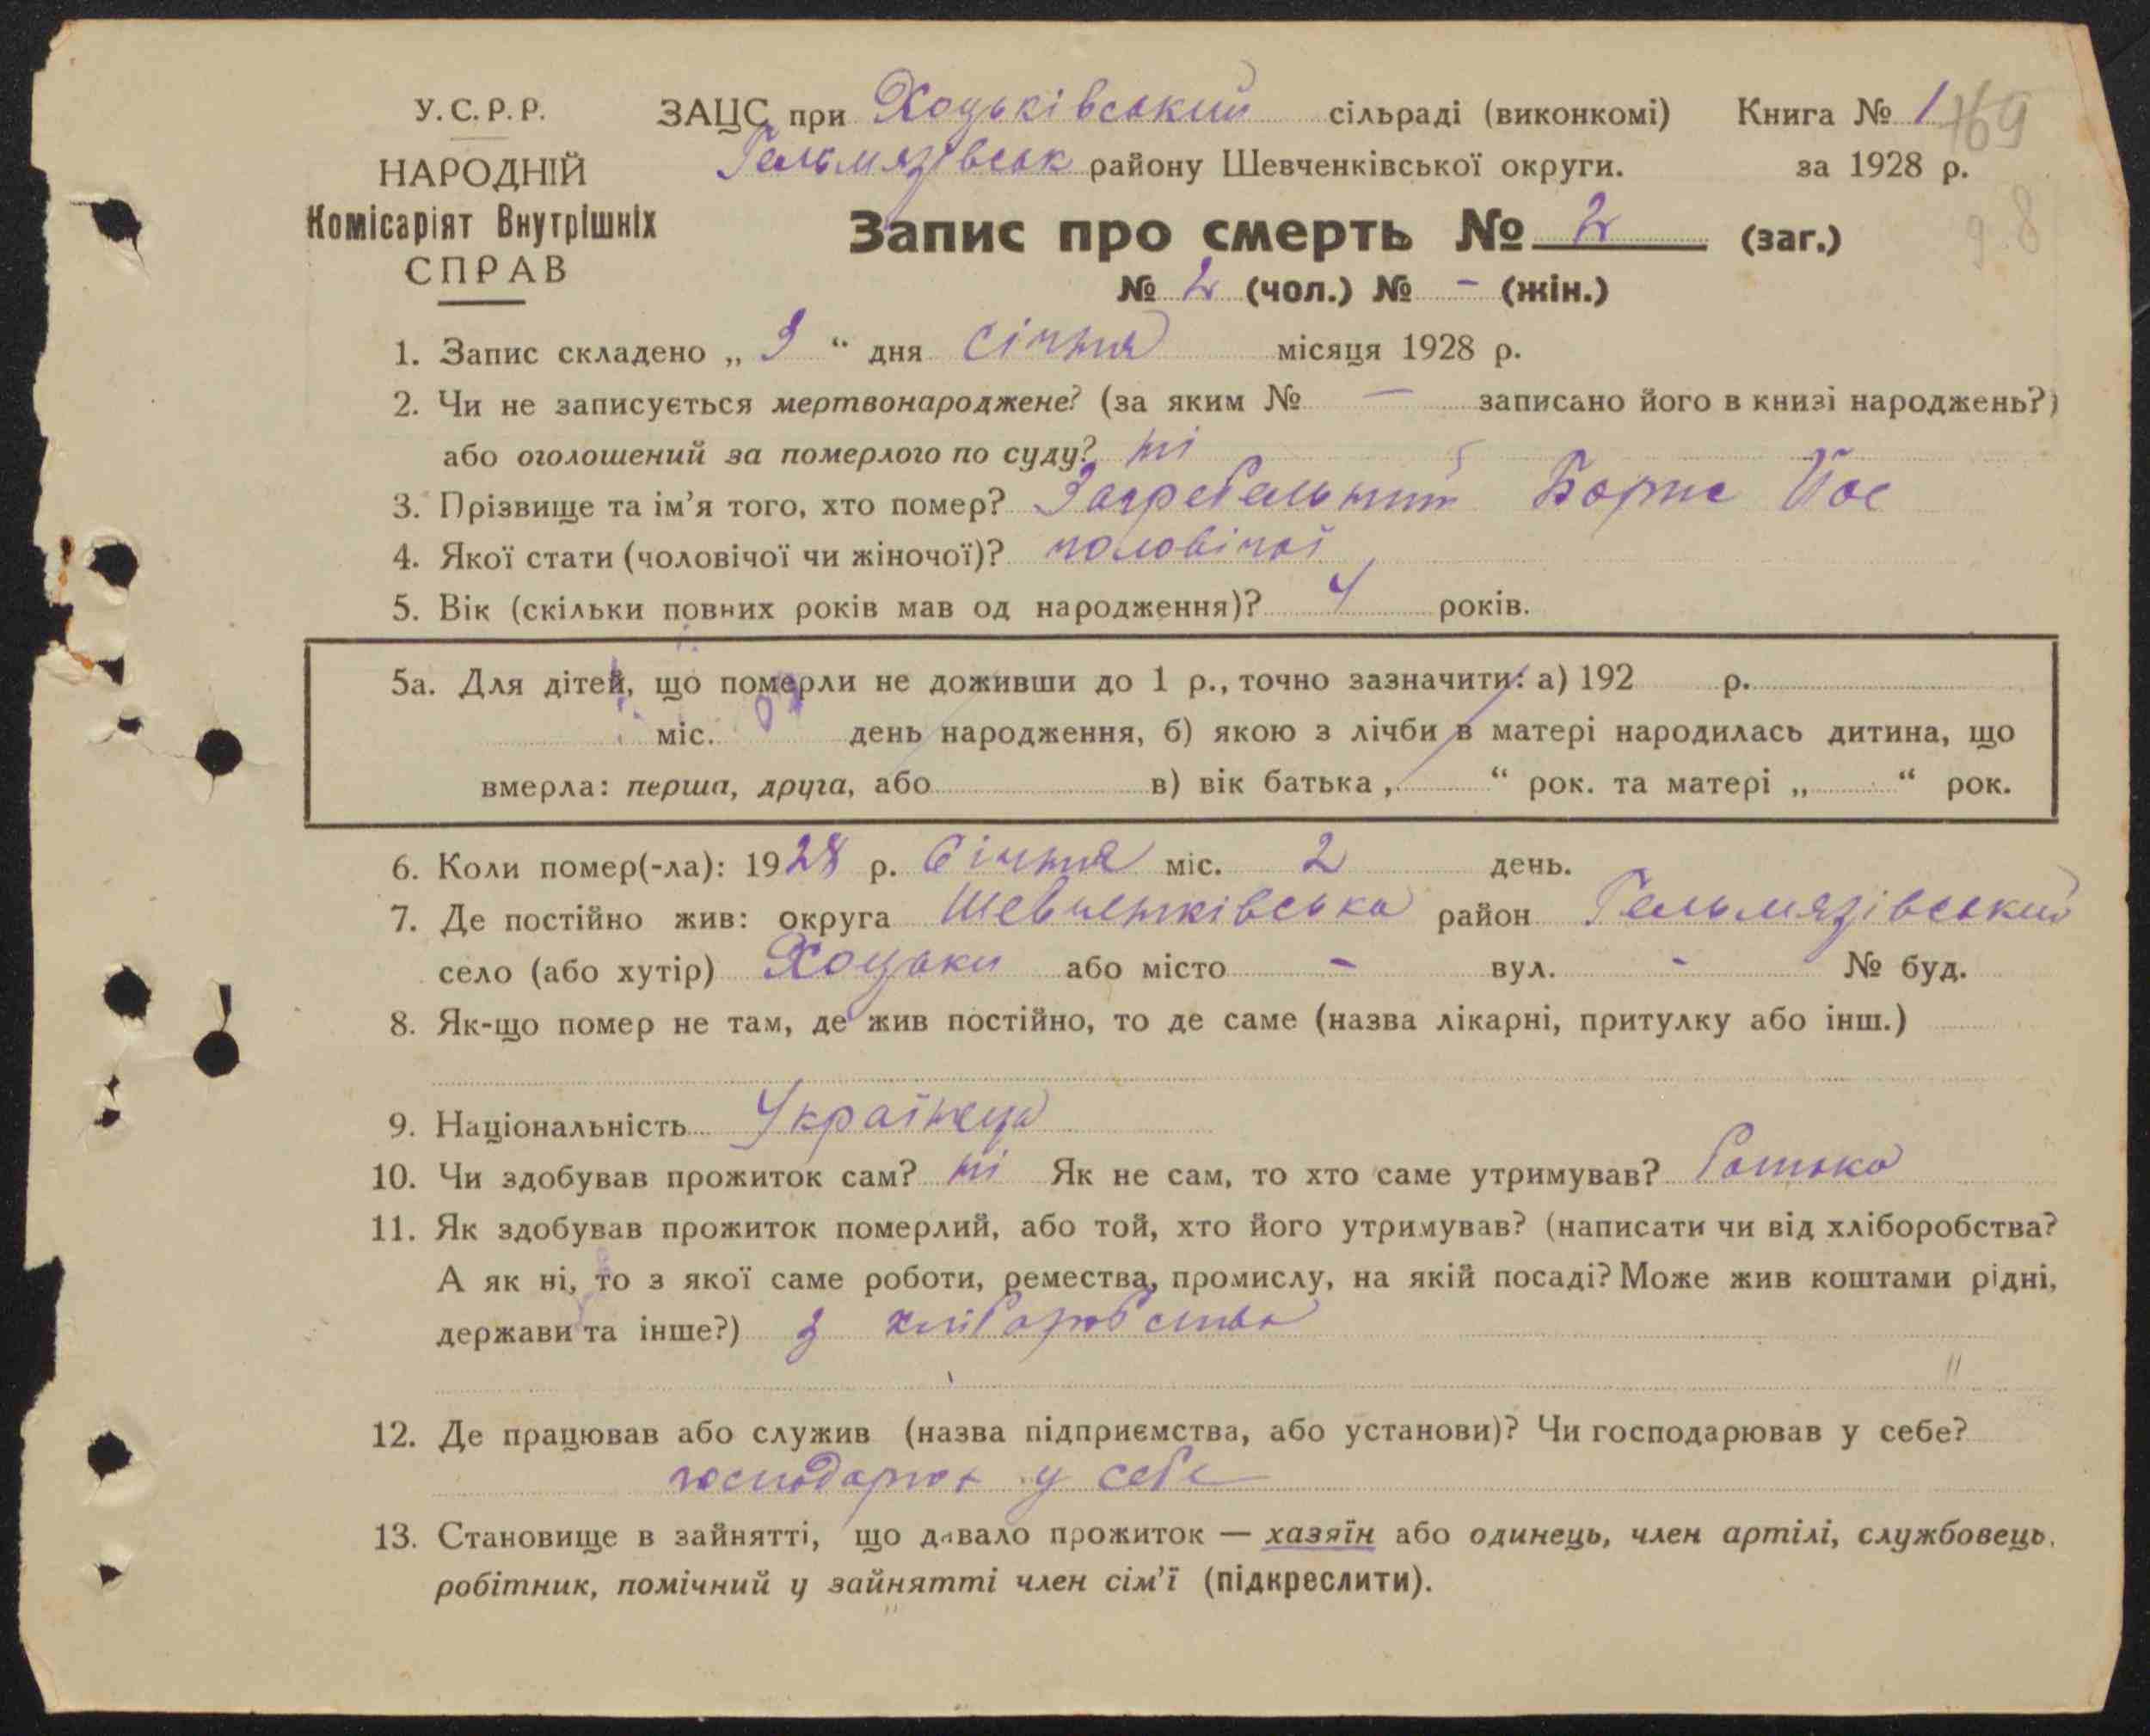 У.С.Р.Р.
НАРОДНІЙ
Комісаріят Внутрішніх
СПРАВ
ЗАЦС при Хоцьківський сільраді (виконкомі) Книга № 1 169
Гельмязівськ району Шевченківської округи. за 1928 р.
98
Запис про смерть № 2 (заг.)
№ 2 (чол.) № - (жін.)
1. Запис складено „ 3 “ дня Січня місяця 1928 р.
2. Чи не записується мертвонароджене? (за яким № — записано його в книзі народжень?)
або оголошений за померлого по суду? ні
3. Прізвище та ім’я того, хто помер? Загребельний Борис Йос
4. Якої стати (чоловічої чи жіночої)? чоловічої
5. Вік (скільки повних років мав од народження)? 4 років.
5а. Для дітей, що померли не доживши до 1 р., точно зазначити: а) 192 р.
міс. день народження, б) якою з лічби в матері народилась дитина, що
вмерла: перша, друга, або в) вік батька „ “ рок. та матері „ “ рок.
6. Коли помер(-ла): 1928 р. Січня міс. 2 день.
7. Де постійно жив: округа Шевченківська район Гельмязівський
село (або хутір) Хоцьки або місто - вул. - № буд.
8. Як-що помер не там, де жив постійно, то де саме (назва лікарні, притулку або інш.)
9. Національність Українець
10. Чи здобував прожиток сам? ні Як не сам, то хто саме утримував? батько
11. Як здобував прожиток померлий, або той, хто його утримував? (написати чи від хліборобства?
А як ні, то з якої саме роботи, ремества, промислу, на якій посаді? Може жив коштами рідні,
держави та інше?) з хліборобства
12. Де працював або служив (назва підприємства, або установи)? Чи господарював у себе?
у себе
13. Становище в зайнятті, що давало прожиток — хазяїн або одинець, член артілі, службовець,
робітник, помічний у зайнятті член сім’ї (підкреслити).